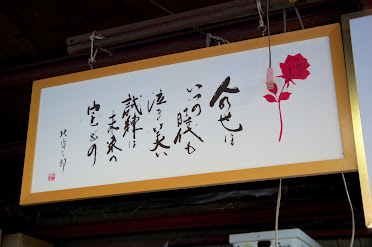 人の世は
いつの時代も
泣き笑い
試練は
未来の
宝もの
北島三郎